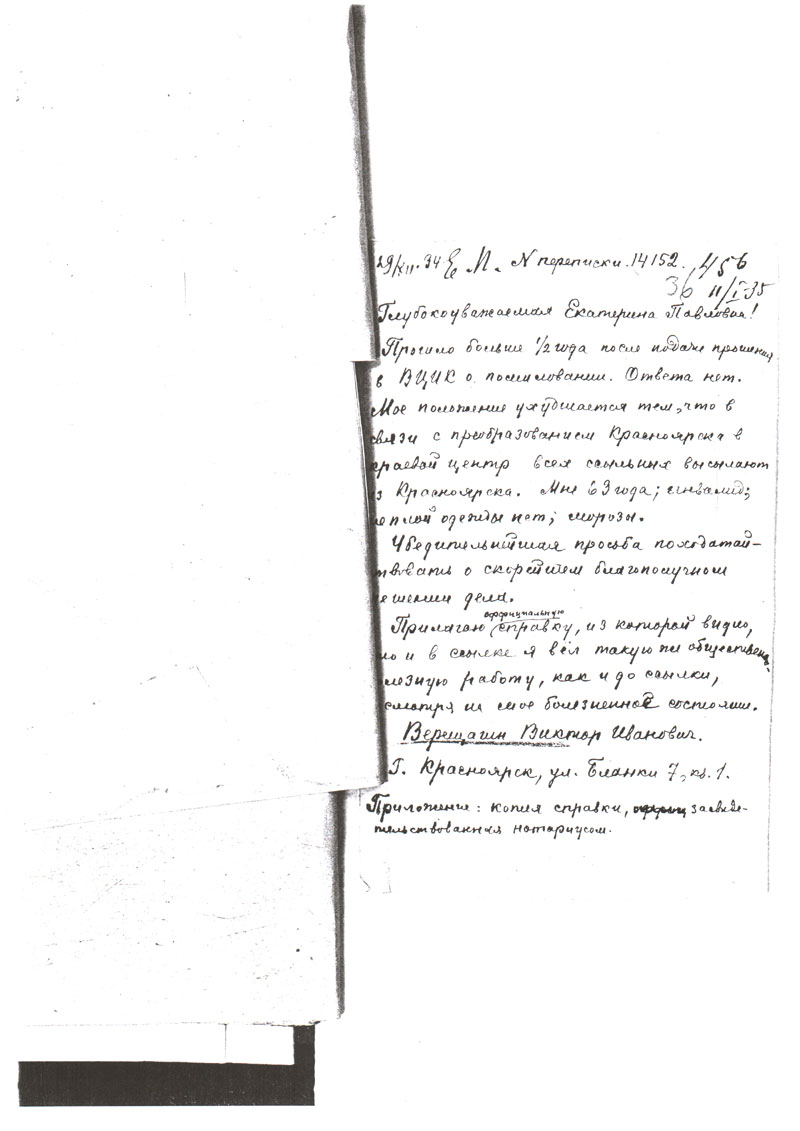 29/XII.34 Е. П. N переписки.14152. 456
36 11/I-35
Глубокоуважаемая Екатерина Павловна!
Прошло больше 1/2 года после подачи прошения
в ВЦИК о помиловании. Ответа нет.
Мое положение ухудшается тем, что в
связи с преобразованием Красноярска в
краевой центр всех ссыльных высылают
из Красноярска. Мне 63 года; инвалид;
теплой одежды нет; морозы.
Убедительнейшая просьба походатай-
ствовать о скорейшем благополучном
решении дела.
оффициальную
Прилагаю справку, из которой видно,
что и в ссылке я вёл такую же общественно-
полезную работу, как и до ссылки,
несмотря на мое болезненное состояние.
Верещагин Виктор Иванович.
Г. Красноярск, ул. Бланки 7, кв. 1.
Приложение: копия справки, засвиде-
тельствованная нотариусом.